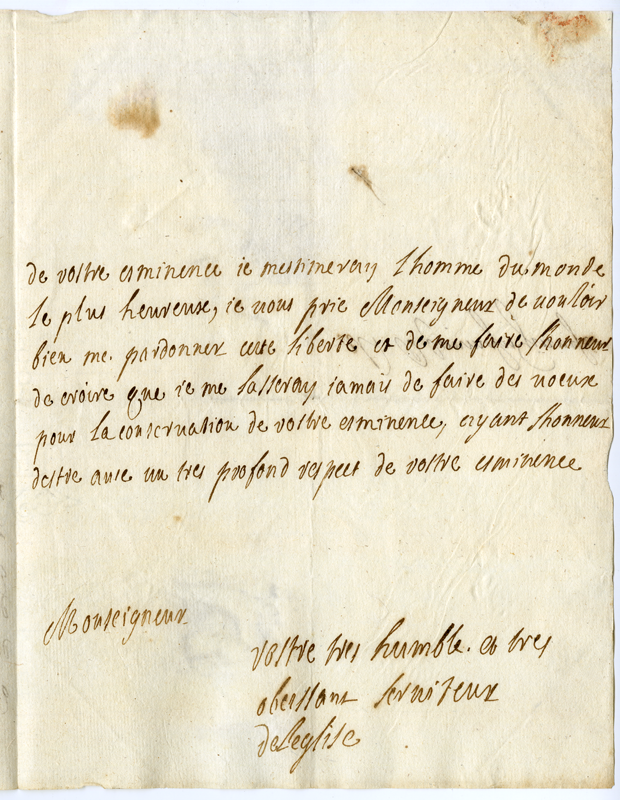 de vostre esminence ie mestimeray lhomme du monde
le plus heureux, ie vous prie Monseigneur de vouloir
bien me pardonner cette liberte et de me faire lhonneur
de croire que ie me lasseray iamais de faire des voeux
pour la conservation de vostre esminence, ayant lhonneur
destre avec un tres profond respect de vostre esminence
Monseigneur
vostre tres humble et tres
obeissant serviteur
deleglise